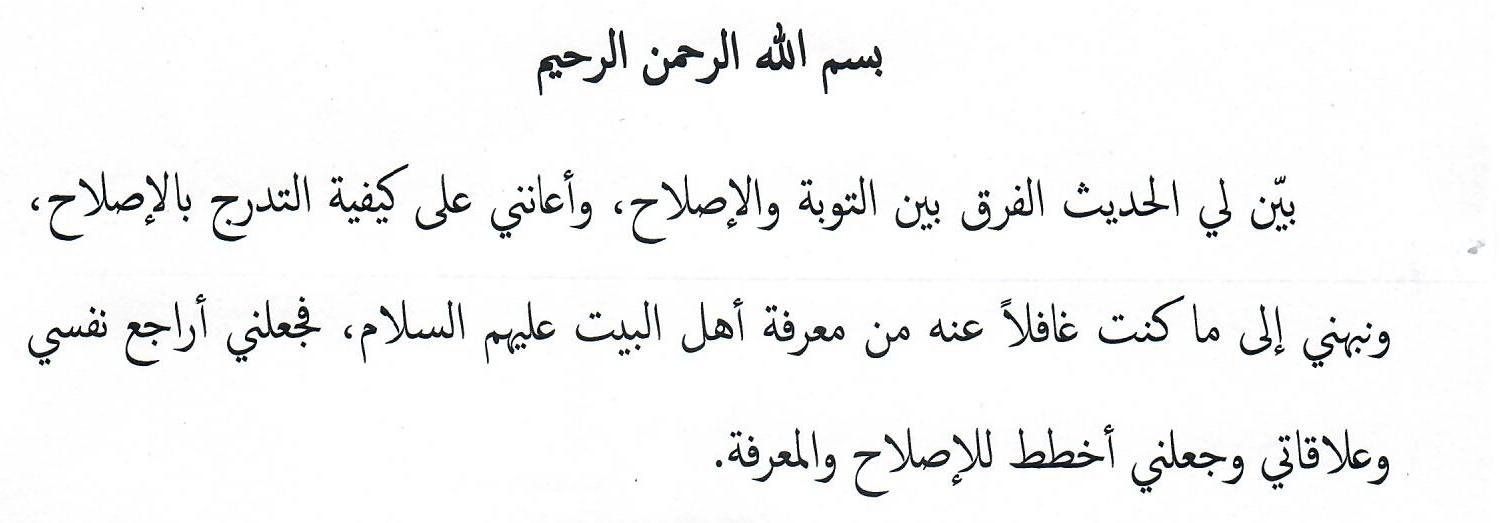 بسم الله الرحمن الرحيم
بيّن لي الحديث الفرق بين التوبة والإصلاح، وأعانني على كيفية التدرج بالإصلاح،
ونبهني إلى ما كنت غافلاً عنه من معرفة أهل البيت عليهم السلام، فجعلني أراجع نفسي
وعلاقاتي وجعلني أخطط للإصلاح والمعرفة.